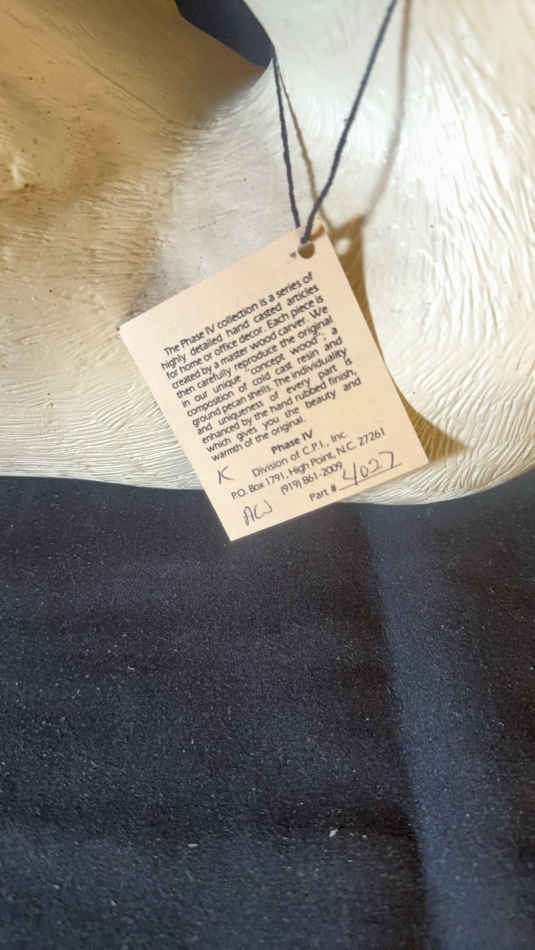 The Phase IV collection is a series of
highly detailed hand casted articles
for home or office decor. Each piece is
created by a master wood carver. We
then carefully reproduce the original
in our unique "concept wood", a
composition of cold cast resin and
ground pecan shell. The individuality
and uniqueness of every part is
enhanced by the hand rubbed finish,
which gives you the beauty and
warmth of the original.
Phase IV
K Division of C.P.I., Inc.
P.O. Box 1791, High Point, N.C. 27261
(919) 861-2009
Part # 4027